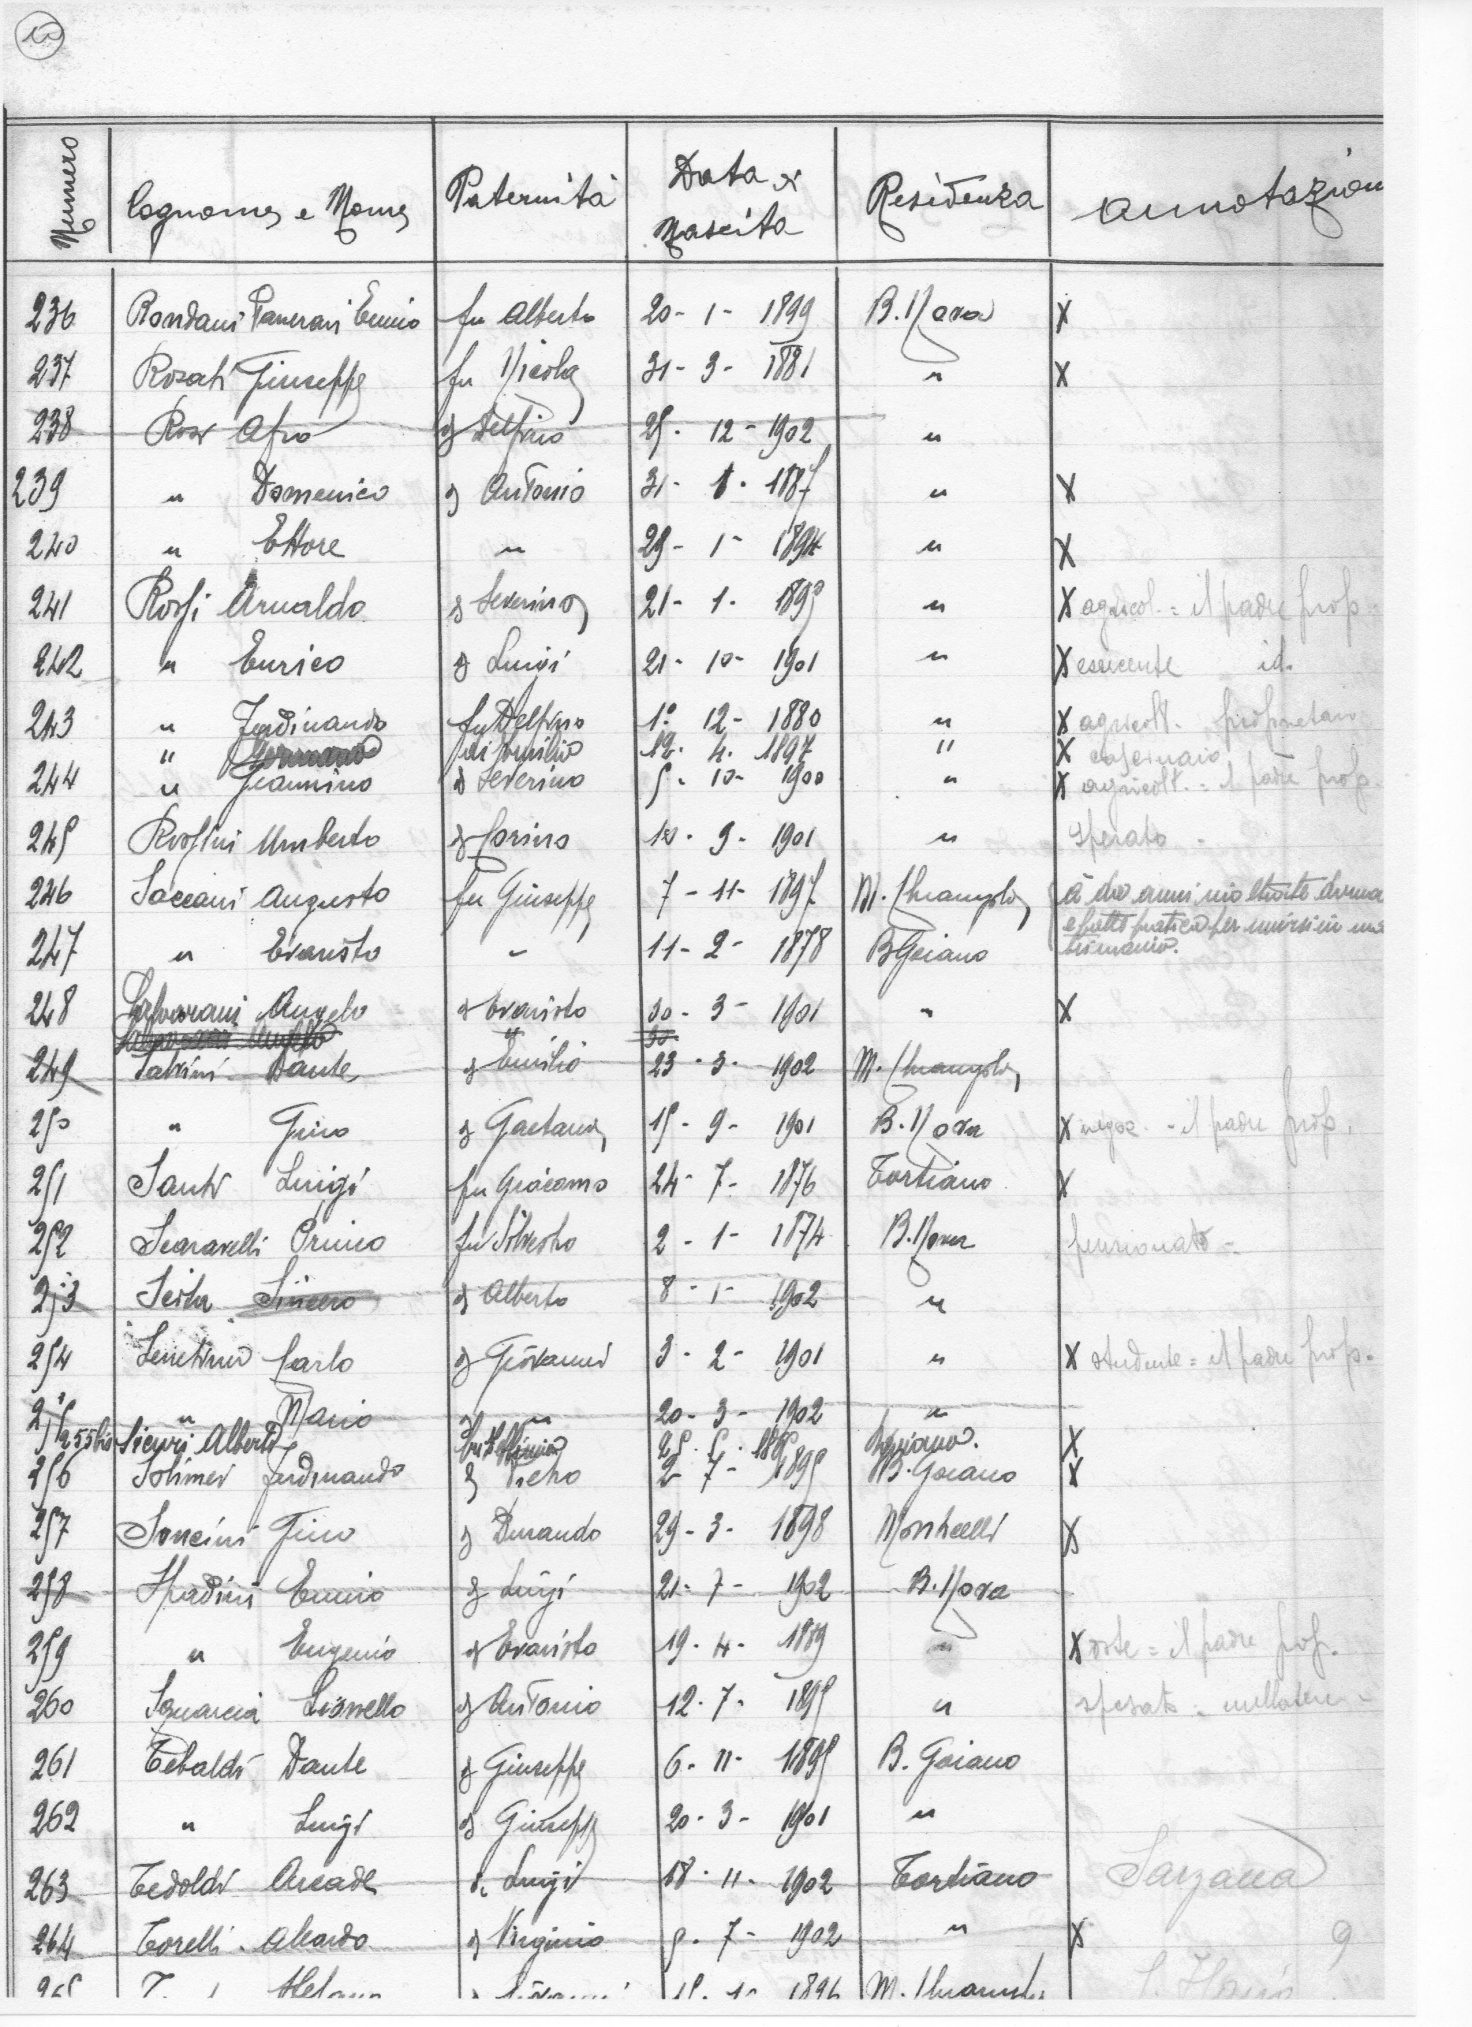 Numero Cognome e Nome Paternità Data di Nascita Residenza Annotazioni
236 Rondani Ennio fu Alberto 20 - 1 - 1899 B. Nova X
237 Rosati Giuseppe fu Nicola 31 - 3 - 1881 " X
238 Rosi Afro di Delfino 25 - 12 - 1902 "
239 " Domenico di Antonio 31 - 1 - 1887 " X
240 " Ettore " 29 - 1 - 1894 " X
241 Rossi Arnaldo di Severino 21 - 1 - 1899 " X agricol. = il padre prop.
242 " Enrico di Luigi 21 - 10 - 1901 " X esercente id.
243 " Ferdinando fu Delfino 1° 12 - 1880 " X agricolt. proprietario
" Germano di Emilio 12 - 4 - 1897 " X
244 " Giannino di Severino 5 - 10 - 1900 " X agricolt. = il padre prop.
245 Rossini Umberto di Corino 10 - 9 - 1901 "
246 Saccani Augusto fu Giuseppe 7 - 11 - 1897 M.
247 " Evaristo " 11 - 2 - 1878 B Gaiano
248 Salvarani Angelo di Evaristo 30 - 3 - 1901 " X
249 Salvini Dante di Emilio 23 - 3 - 1902 M.
250 " Gino di Gaetano 15 - 9 - 1901 B. Nova X negoz. = il padre prop.
251 Santi Luigi fu Giacomo 24 - 7 - 1876 Tortiano X
252 Scaravelli Primo fu Silvestro 2 - 1 - 1874 B. Nova pensionato =
253 Sincero di Alberto 8 - 1 - 1902 "
254 Carlo di Giovanni 3 - 2 - 1901 " X studente = il padre prop.
255 " Mario " " 20 - 3 - 1902 "
255 bis Sicuri Alberto X
256 Solimei Ferdinando di Pietro 2 - 7 - 1895 B. Gaiano X
257 Soncini Gino di Durando 29 - 3 - 1898 Monticelli X
258 Spadini Ennio di Luigi 21 - 7 - 1902 B. Nova
259 " Eugenio di Evaristo 19 - 4 - 1889 " X oste = il padre prop.
260 Squarcia Lionello di Antonio 12 - 7 - 1895 "
261 Tebaldi Dante di Giuseppe 6 - 11 - 1895 B. Gaiano
262 " Luigi di Giuseppe 20 - 3 - 1901 "
263 Tedoldi Arcade di Luigi 18 - 11 - 1902 Tortiano Sarzana
264 Torelli Alcardo di Virginio 5 - 7 - 1902 " X 9